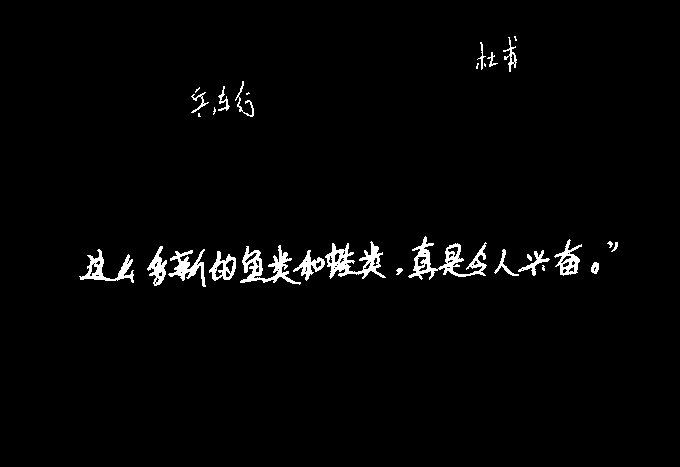 杜甫
兵车行
这么多新的鱼类和蛙类，真是令人兴奋。”